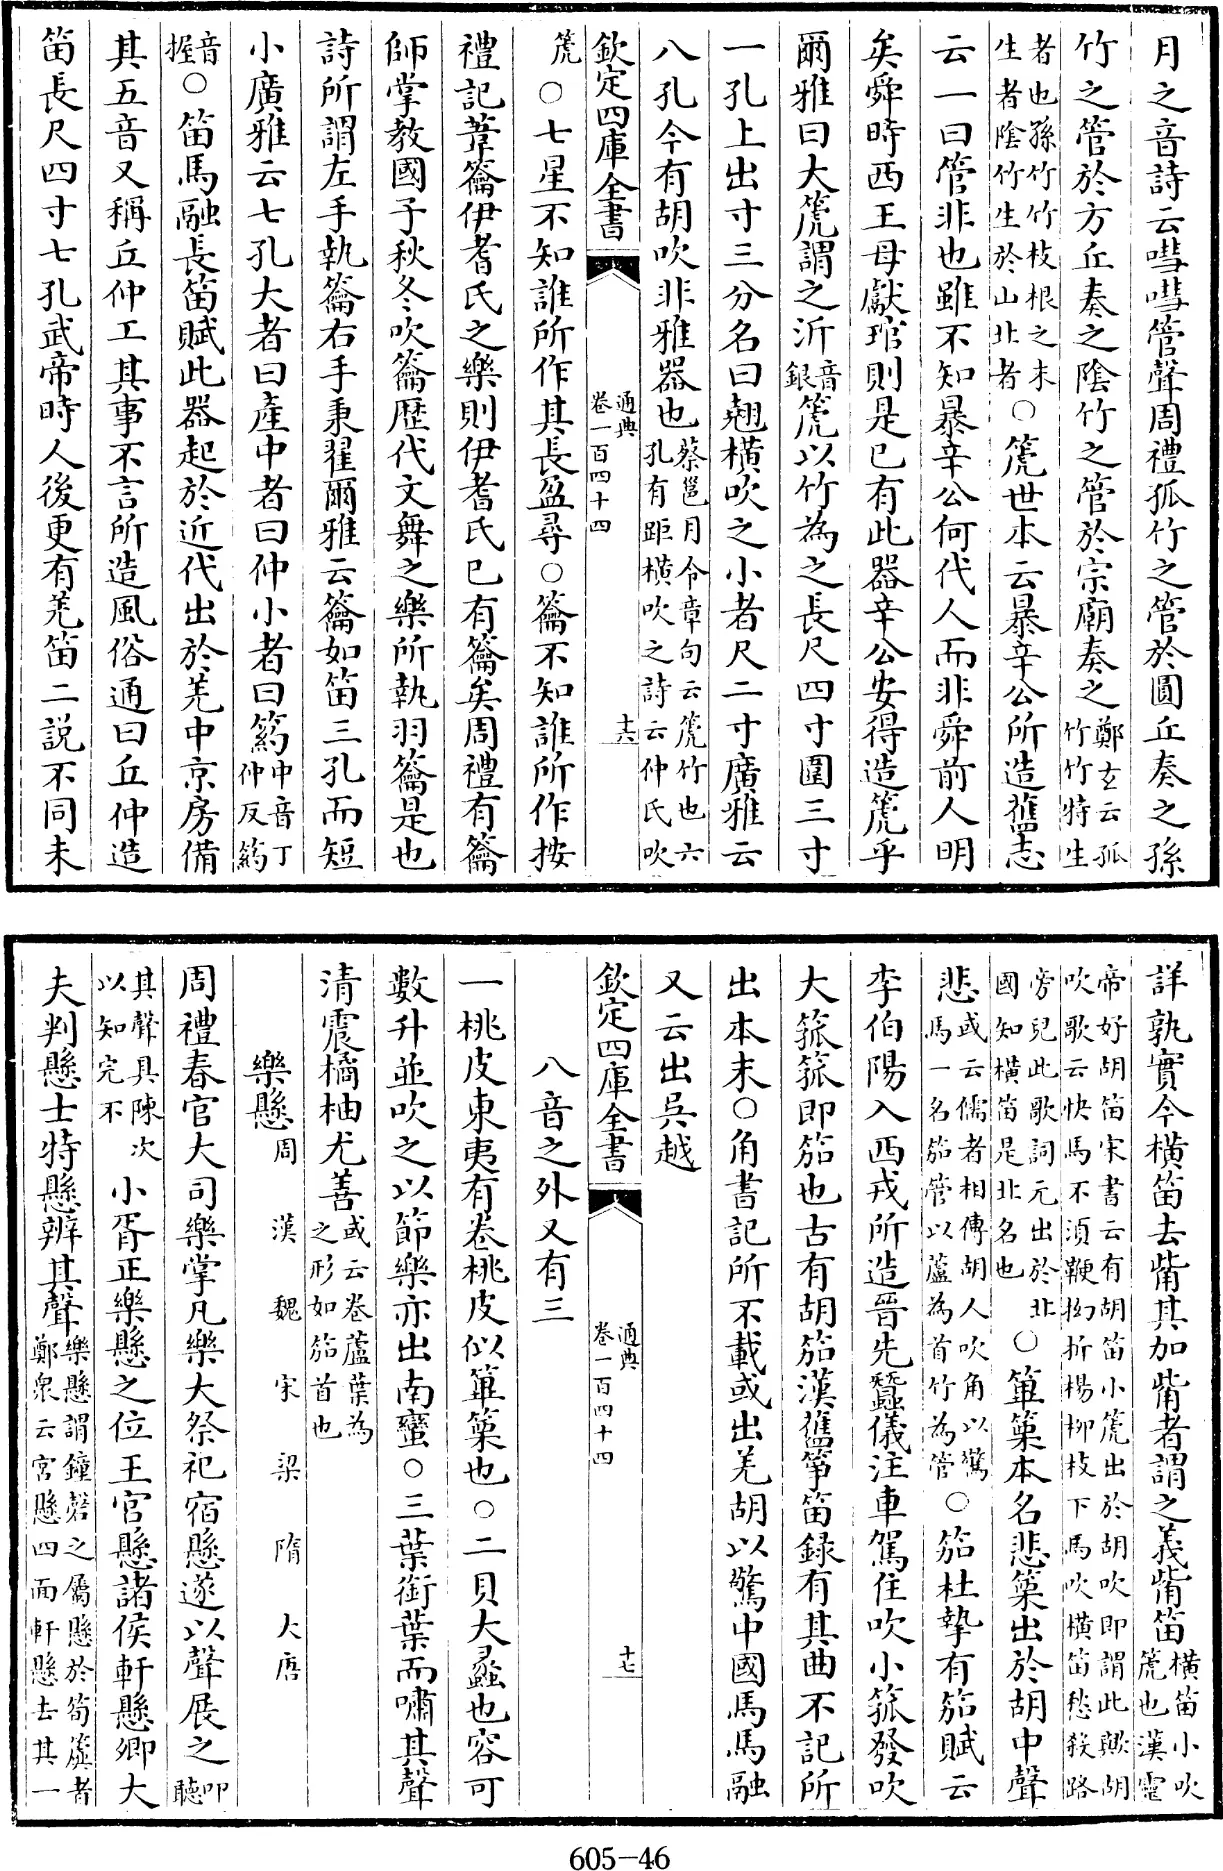 月之音詩云嘒嘒管聲周禮孤竹之管於圓丘奏之孫
竹之管於方丘奏之陰竹之管於宗廟奏之鄭玄云孤竹竹特生
者也孫竹竹枝根之末生者陰竹生於山北者○篪世本云暴辛公所造舊志
云一曰管非也雖不知暴辛公何代人而非舜前人明
矣舜時西王母獻琯則是已有此器辛公安得造篪乎
爾雅曰大篪謂之沂音銀篪以竹為之長尺四寸圍三寸
一孔上出寸三分名曰翹橫吹之小者尺二寸廣雅云
八孔今有胡吹非雅器也蔡邕月令章句云篪竹也六孔有距橫吹之詩云仲氏吹
欽定四庫全書 通典卷一百四十四 十六
篪○七星不知誰所作其長盈尋○籥不知誰所作按
禮記葦籥伊耆氏之樂則伊耆氏已有籥矣周禮有籥
師掌教國子秋冬吹籥歷代文舞之樂所執羽籥是也
詩所謂左手執籥右手秉翟爾雅云籥如笛三孔而短
小廣雅云七孔大者曰產中者曰仲小者曰箹中音丁仲反箹
音握○笛馬融長笛賦此器起於近代出於羌中京房備
其五音又稱丘仲工其事不言所造風俗通曰丘仲造
笛長尺四寸七孔武帝時人後更有羌笛二說不同未
詳孰實今橫笛去觜其加觜者謂之義觜笛橫笛小篪也漢靈
帝好胡笛宋書云有胡笛小篪出於胡吹即謂此歟胡吹歌云快馬不須鞭拗折楊柳枝下馬吹橫笛愁殺路
旁兒此歌詞元出於北國知橫笛是北名也○篳篥本名悲篥出於胡中聲
悲或云儒者相傳胡人吹角以驚馬一名笳管以蘆為首竹為管○笳杜摯有笳賦云
李伯陽入西戎所造晉先蠶儀注車駕住吹小箛發吹
大箛箛即笳也古有胡笳漢舊箏笛錄有其曲不記所
出本末○角書記所不載或出羌胡以驚中國馬馬融
又云出吳越
欽定四庫全書 通典卷一百四十四 十七
八音之外又有三
一桃皮東夷有卷桃皮似篳篥也○二貝大蠡也容可
數升並吹之以節樂亦出南蠻○三葉銜葉而嘯其聲
清震橘柚尤善或云卷蘆葉為之形如笳首也
樂懸周 漢 魏 宋 梁 隋 大唐
周禮春官大司樂掌凡樂大祭祀宿懸遂以聲展之叩聽
其聲具陳次以知完不小胥正樂懸之位王宮懸諸侯軒懸卿大
夫判懸士特懸辨其聲樂懸謂鐘磬之屬懸於筍虡者鄭衆云宮懸四面軒懸去其一
605-46